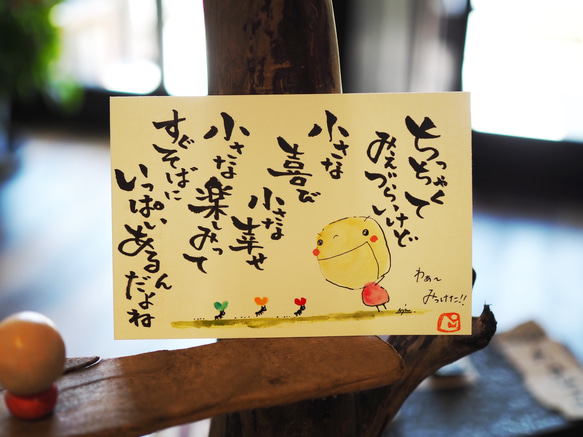 ちっちゃくて
みえづらいけど
小さな
喜び
小さな
幸せ
小さな
楽しみって
すぐそばに
いっぱい
あるん
だよね
わぁ〜
みつけた!!